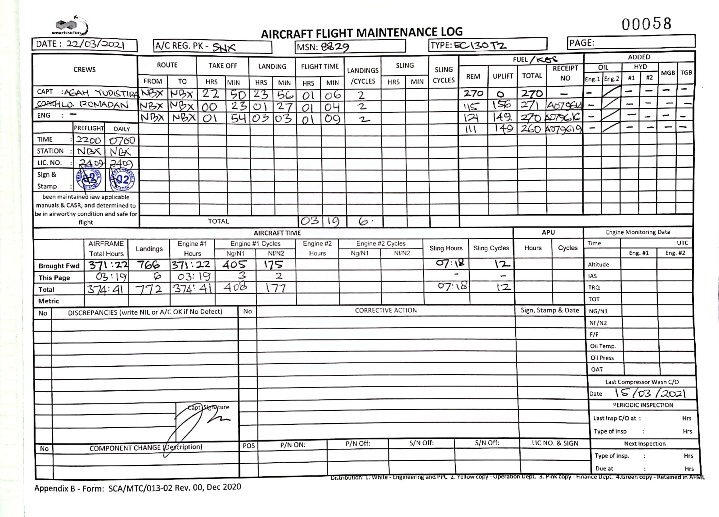 smartcakrawala
AIRCRAFT FLIGHT MAINTENANCE LOG
00058
DATE: 22/03/2021 A/C REG. PK - SNK MSN: 8829 TYPE: EC130T2 PAGE:
CREWS ROUTE TAKE OFF LANDING FLIGHT TIME LANDINGS /CYCLES SLING SLING CYCLES FUEL / KGS ADDED
FROM TO HRS MIN HRS MIN HRS MIN HRS MIN REM UPLIFT TOTAL RECEIPT NO OIL HYD MGB TGB
Eng.1 Eng.2 #1 #2
CAPT : AGAH YUDISTIRA NBX NBX 22 50 23 56 01 06 2 270 0 270 - - - - - -
RONADAN NBX NBX 00 23 01 27 01 04 2 115 156 271 - - - - -
ENG : - NBX NBX 01 54 03 03 01 09 2 121 149 270 - - - - -
111 149 260
PREFLIGHT DAILY
TIME 2200 0760
STATION : NBX NBX
LIC. NO. : 2409 2409
Sign & Stamp
been maintained iaw applicable
manuals & CASR, and determined to
be in airworthy condition and safe for
flight
TOTAL 03 19 6.
AIRCRAFT TIME APU Engine Monitoring Data
AIRFRAME Total Hours Landings Engine #1 Hours Engine #1 Cycles Ng/N1 Nf/N2 Engine #2 Hours Engine #2 Cycles Ng/N1 Nf/N2 Sling Hours Sling Cycles Hours Cycles Time UTC
Eng. #1 Eng. #2
Brought Fwd 371:22 766 371:22 405 175 07:18 12 Altitude
This Page 03:19 6 03:19 3 2 - - IAS
Total 374:41 772 374:41 408 177 07:18 12 TRQ
Metric TOT
No DISCREPANCIES (write NIL or A/C OK if No Defect) No CORRECTIVE ACTION Sign, Stamp & Date NG/N1
NF/N2
F/F
Oil Temp.
Oil Press
OAT
Last Compressor Wash C/O
Date 15/03/2021
PERIODIC INSPECTION
Capt Signature
Last Insp C/O at : Hrs
Type of Insp : Hrs
No COMPONENT CHANGE (Description) POS P/N ON: P/N Off: S/N Off: S/N Off: LIC NO. & SIGN Next Inspection
Type of Insp. : Hrs
Due at : Hrs
Distribution: 1. White - Engineering and PPC 2. Yellow copy - Operation Dept. 3. Pink copy - Finance Dept. 4.Green copy - Retained in AFML
Appendix B - Form: SCA/MTC/013-02 Rev. 00, Dec 2020